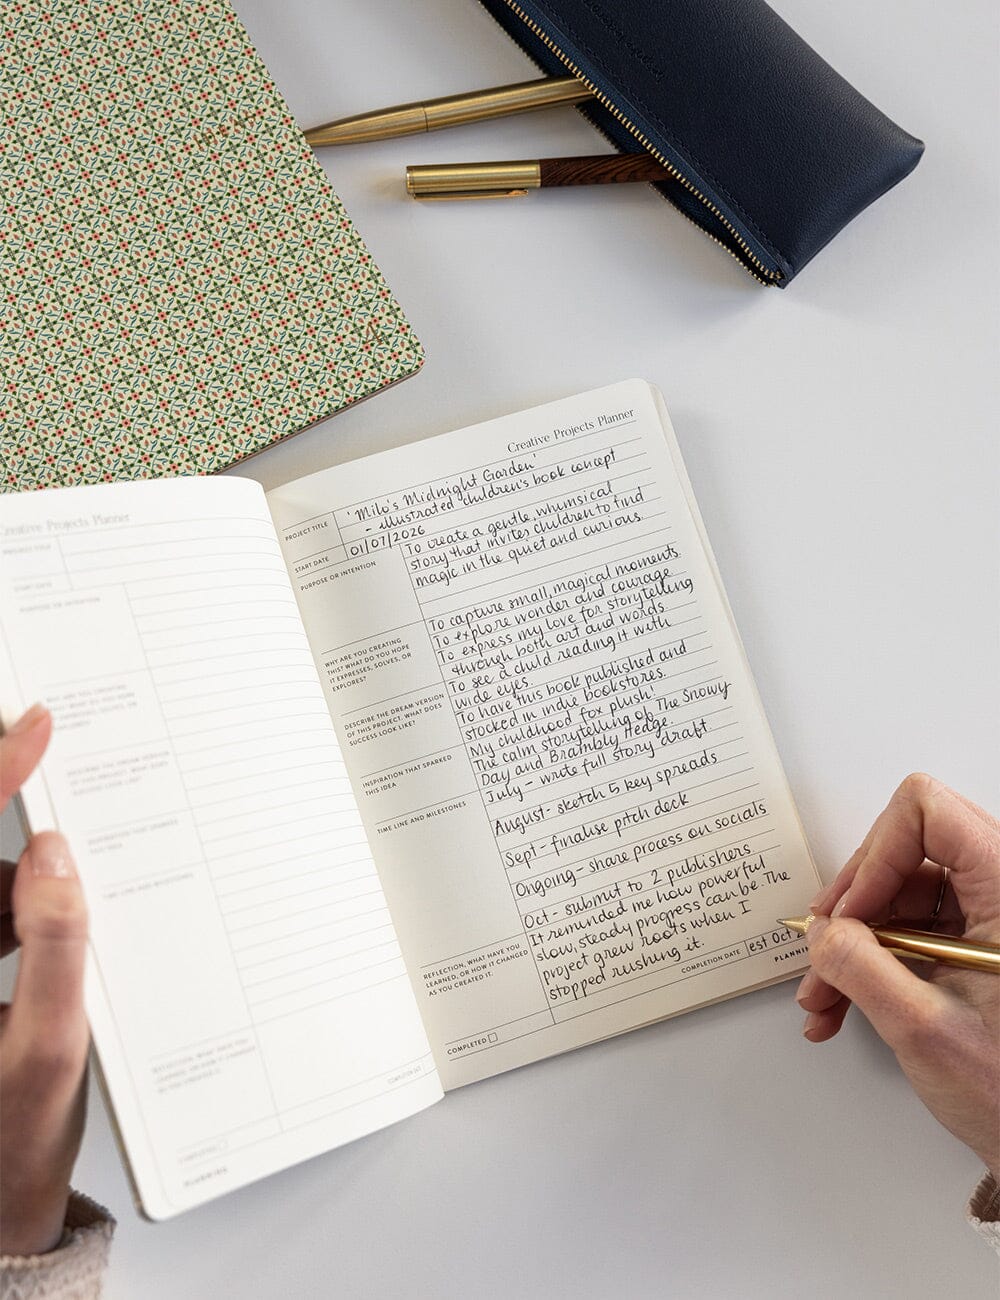 Creative Projects Planner
PROJECT TITLE
START DATE
PURPOSE OR INTENTION
WHY ARE YOU CREATING
THIS? WHAT DO YOU HOPE
IT EXPRESSES, SOLVES, OR
EXPLORES?
DESCRIBE THE DREAM VERSION
OF THIS PROJECT. WHAT DOES
SUCCESS LOOK LIKE?
INSPIRATION THAT SPARKED
THIS IDEA
TIME LINE AND MILESTONES
REFLECTION, WHAT HAVE YOU
LEARNED, OR HOW IT CHANGED
AS YOU CREATED IT.
COMPLETED
PLANNING
Creative Projects Planner
PROJECT TITLE
'Milo's Midnight Garden'
- illustrated children's book concept
START DATE
01/07/2026
PURPOSE OR INTENTION
To create a gentle, whimsical
story that invites children to find
magic in the quiet and curious.
WHY ARE YOU CREATING
THIS? WHAT DO YOU HOPE
IT EXPRESSES, SOLVES, OR
EXPLORES?
To capture small, magical moments.
To explore wonder and courage
To express my love for storytelling
through both art and words.
DESCRIBE THE DREAM VERSION
OF THIS PROJECT. WHAT DOES
SUCCESS LOOK LIKE?
To see a child reading it with
wide eyes.
To have this book published and
stocked in indie bookstores.
INSPIRATION THAT SPARKED
THIS IDEA
My childhood fox plush!
The calm storytelling of The Snowy
Day and Brambly Hedge.
TIME LINE AND MILESTONES
July - write full story draft
August - sketch 5 key spreads
Sept - finalise pitch deck
Ongoing - share process on socials
Oct - submit to 2 publishers
REFLECTION, WHAT HAVE YOU
LEARNED, OR HOW IT CHANGED
AS YOU CREATED IT.
It reminded me how powerful
slow, steady progress can be. The
project grew roots when I
stopped rushing it.
COMPLETED
COMPLETION DATE
est Oct